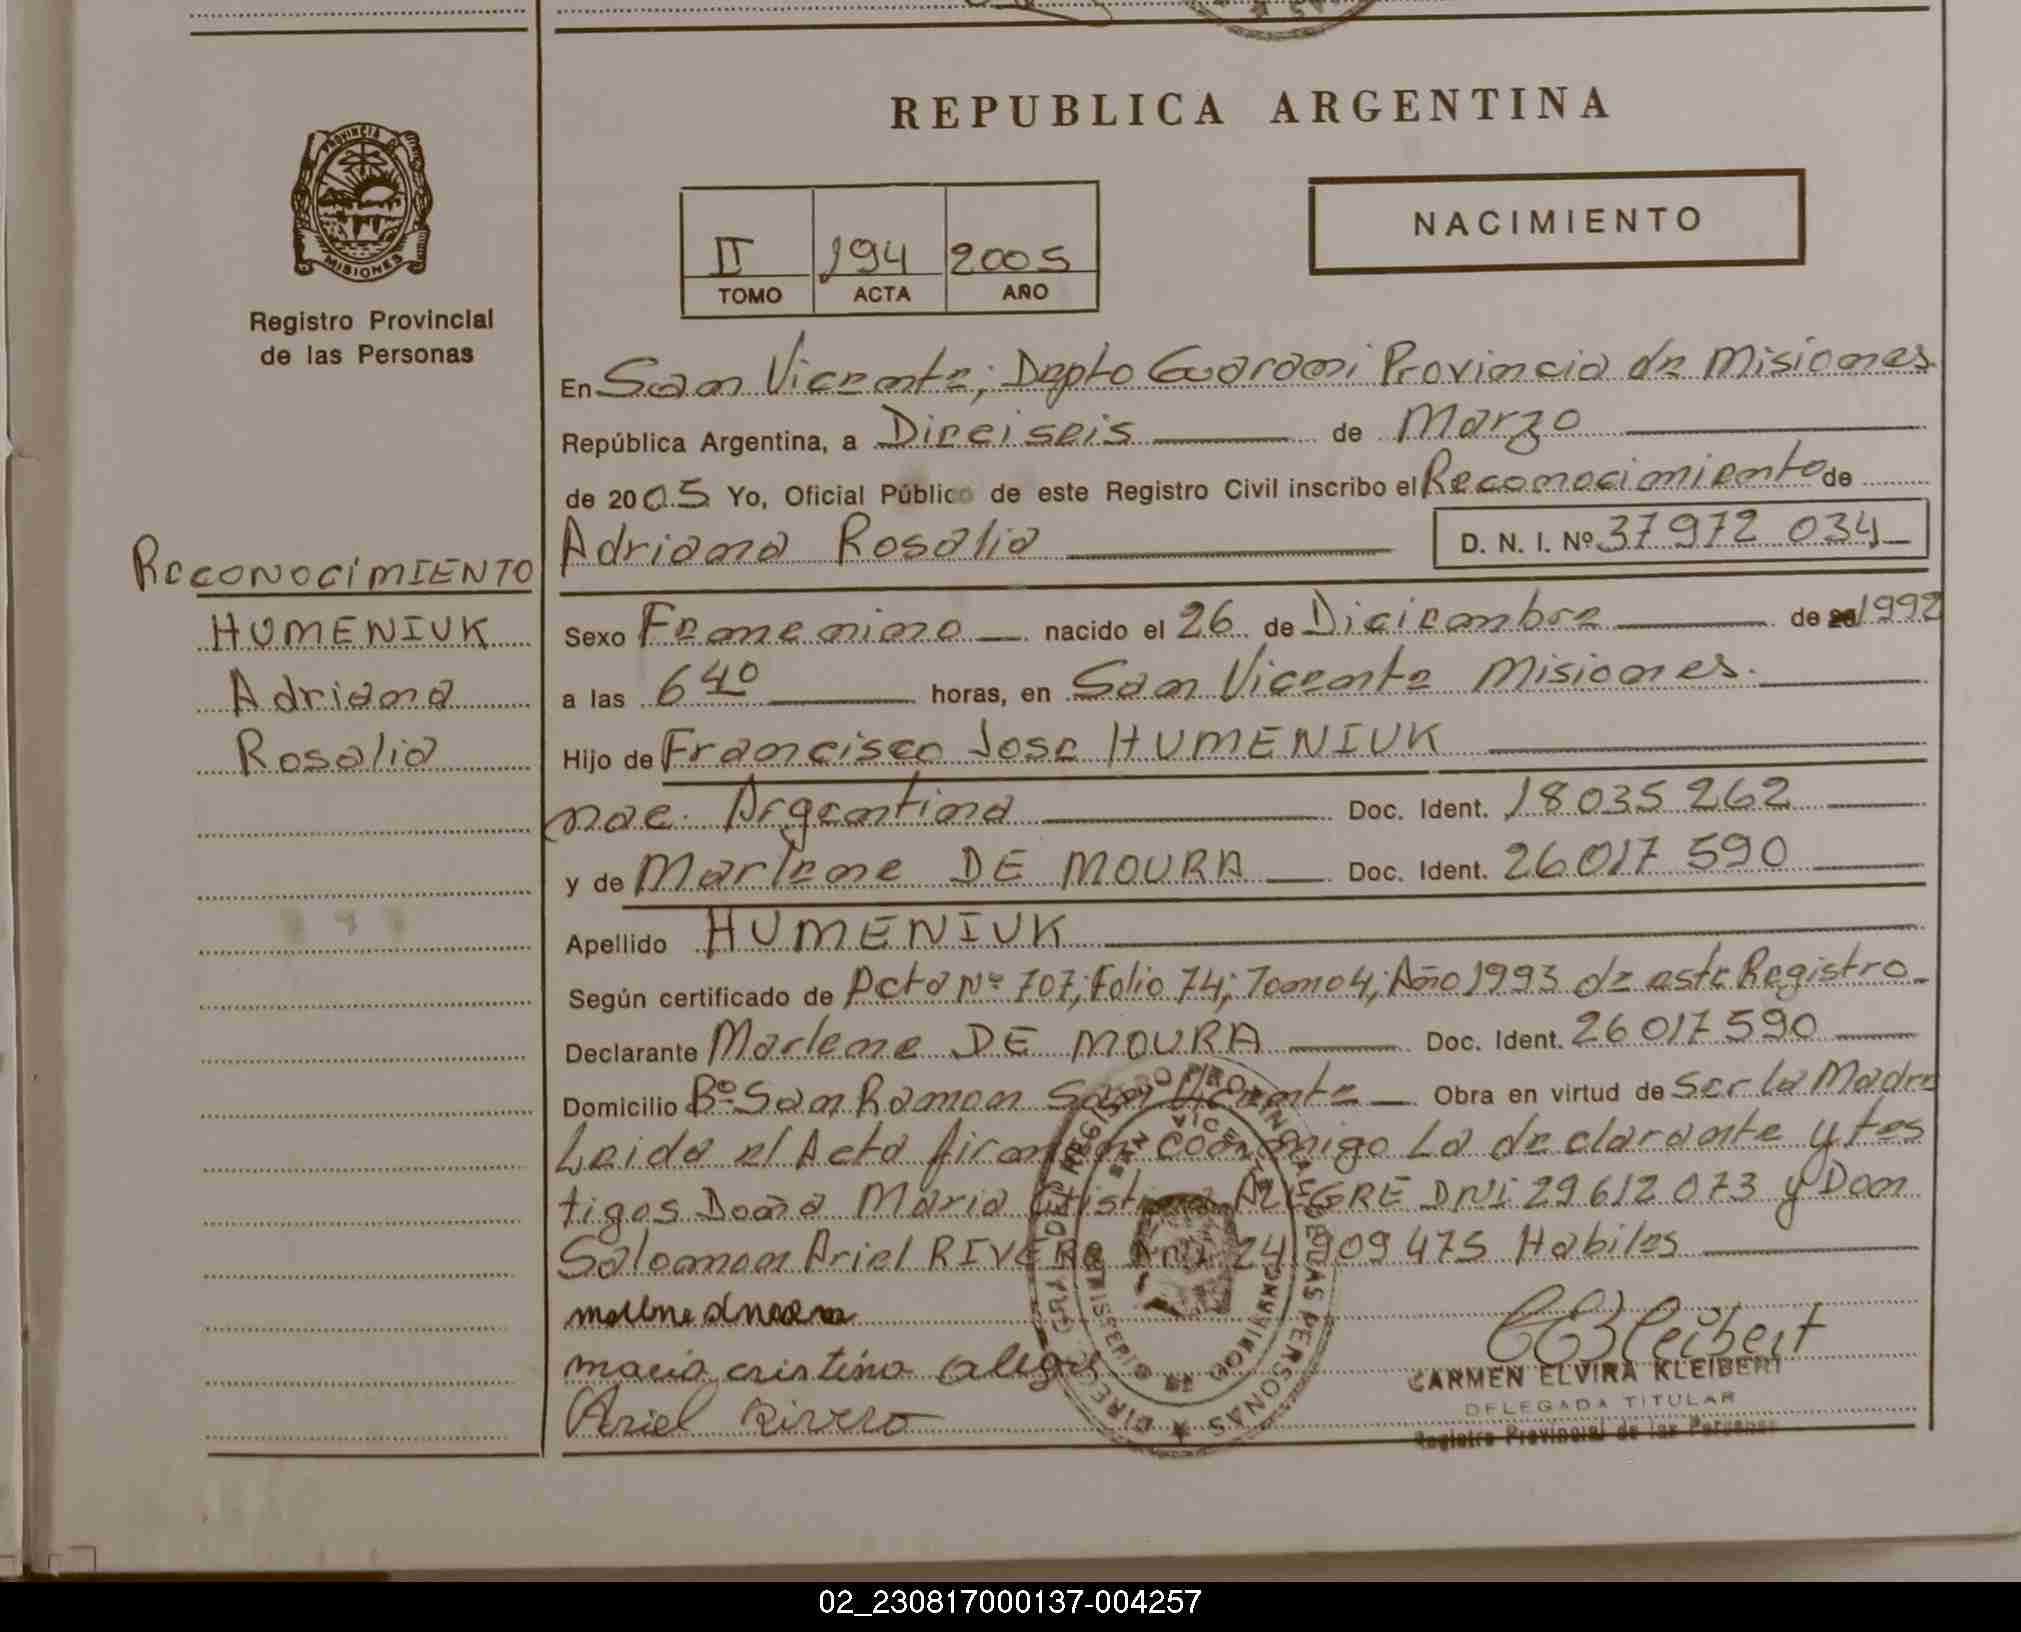 REPUBLICA ARGENTINA
PROVINCIA DE
MISIONES
Registro Provincial
de las Personas
II 194 2005
TOMO ACTA AÑO
NACIMIENTO
En San Vicente; Depto Guarani Provincia de Misiones
República Argentina, a Dieciseis de Marzo
de 2005 Yo, Oficial Público de este Registro Civil inscribo el Reconocimiento de
Adriana Rosalia D. N. I. Nº 37972 034
Sexo Femenino nacido el 26 de Diciembre de 1992
a las 6 40 horas, en San Vicente Misiones.
Hijo de Francisco Jose HUMENIUK
nac. Argentina Doc. Ident. 18035262
y de Marlene DE MOURA Doc. Ident. 26017 590
Apellido HUMENIUK
Según certificado de Acta Nº 707; Folio 74; Tomo 4; Año 1993 de este Registro
Declarante Marlene DE MOURA Doc. Ident. 26 017 590
Domicilio Bº San Ramon San Vicente Obra en virtud de Ser la Madre
Leida el Acta firman conmigo La declarante y tes
tigos Doña Maria Cristina ALEGRE DNi 29612073 y Don
Salomon Ariel RIVERO DNI 24 909 475 Habiles
maria cristina alegre
Ariel Rivero
CBKleibert
CARMEN ELVIRA KLEIBERT
DELEGADA TITULAR
Registro Provincial de las Personas
RECONOCIMIENTO
HUMENIUK
Adriana
Rosalia
02_230817000137-004257